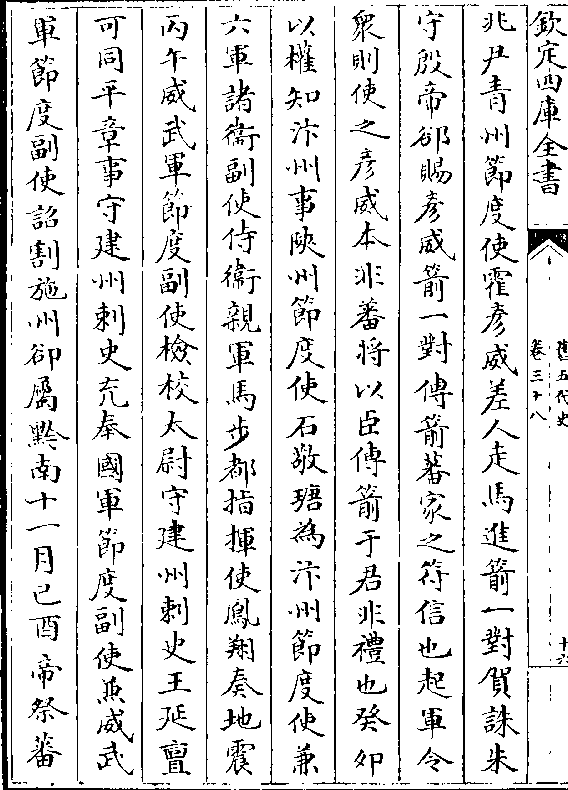 欽定四庫全書
舊五代史
卷三十八
十六
兆尹青州節度使霍彥威差人走馬進箭一對賀誅朱
守殷帝卻賜彥威箭一對傳箭蕃家之符信也起軍令
衆則使之彥威本非蕃將以臣傳箭于君非禮也癸卯
以權知汴州事陝州節度使石敬瑭為汴州節度使兼
六軍諸衞副使侍衞親軍馬步都指揮使鳳翔奏地震
丙午威武軍節度副使檢校太尉守建州刺史王延亶
可同平章事守建州刺史充奉國軍節度副使兼威武
軍節度副使詔割施州卻屬黔南十一月己酉帝祭蕃